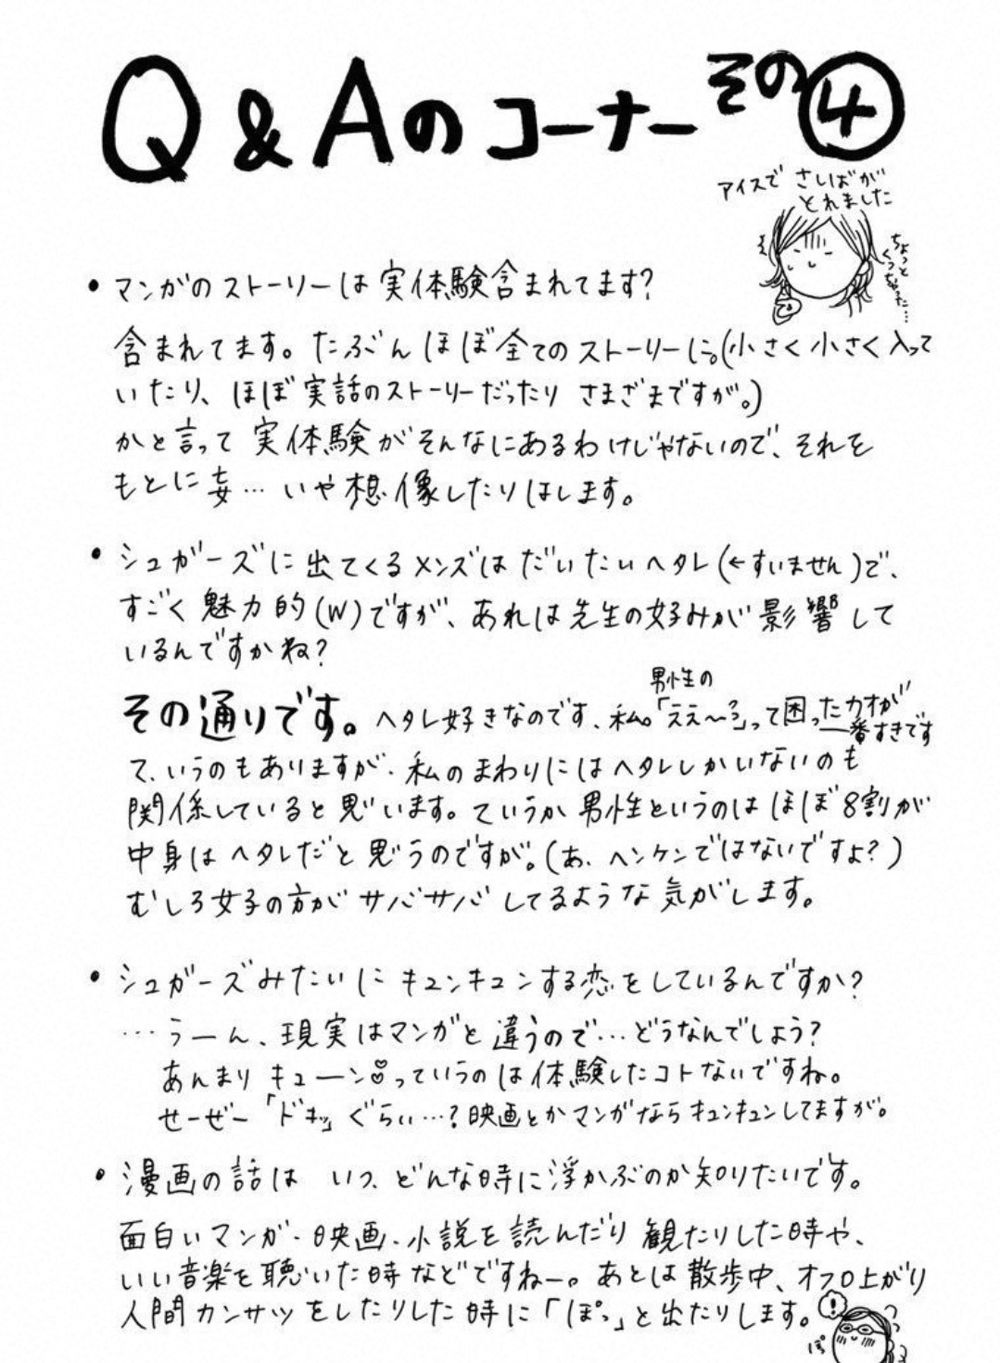 Q&Aのコーナー その④
アイスで さしばが
とれました
ちょっと
くっちゃった…
• マンガのストーリーは 実体験含まれてます?
含まれてます。たぶん ほぼ全てのストーリーに。(小さく小さく入って
いたり、ほぼ実話のストーリーだったり さまざまですが。)
かと言って 実体験がそんなにあるわけじゃないので、それを
もとに妄…いや想像したりはします。
• シュガーズに出てくるメンズは だいたいヘタレ(←すいません)で、
すごく魅力的(W)ですが、あれは先生の好みが影響して
いるんですかね?
その通りです。ヘタレ好きなのです、私。男性の「ええ〜?」って困ったカオが
一番すきです
て、いうのもありますが、私のまわりにはヘタレしかいないのも
関係していると思います。ていうか男性というのは ほぼ8割が
中身はヘタレだと思うのですが。(あ、ヘンケンではないですよ?)
むしろ女子の方がサバサバしてるような気がします。
• シュガーズみたいに キュンキュンする恋をしているんですか?
…うーん、現実はマンガと違うので…どうなんでしょう?
あんまり キューン♡っていうのは体験したコトないですね。
せーぜー「ドキッ」ぐらい…?映画とかマンガならキュンキュンしてますが。
• 漫画の話は いつ、どんな時に浮かぶのか知りたいです。
面白いマンガ・映画・小説を読んだり 観たりした時や、
いい音楽を聴いた時などですねー。あとは散歩中、オフロ上がり
人間カンサツをしたりした時に「ぽっ」と出たりします。
!
ぽ